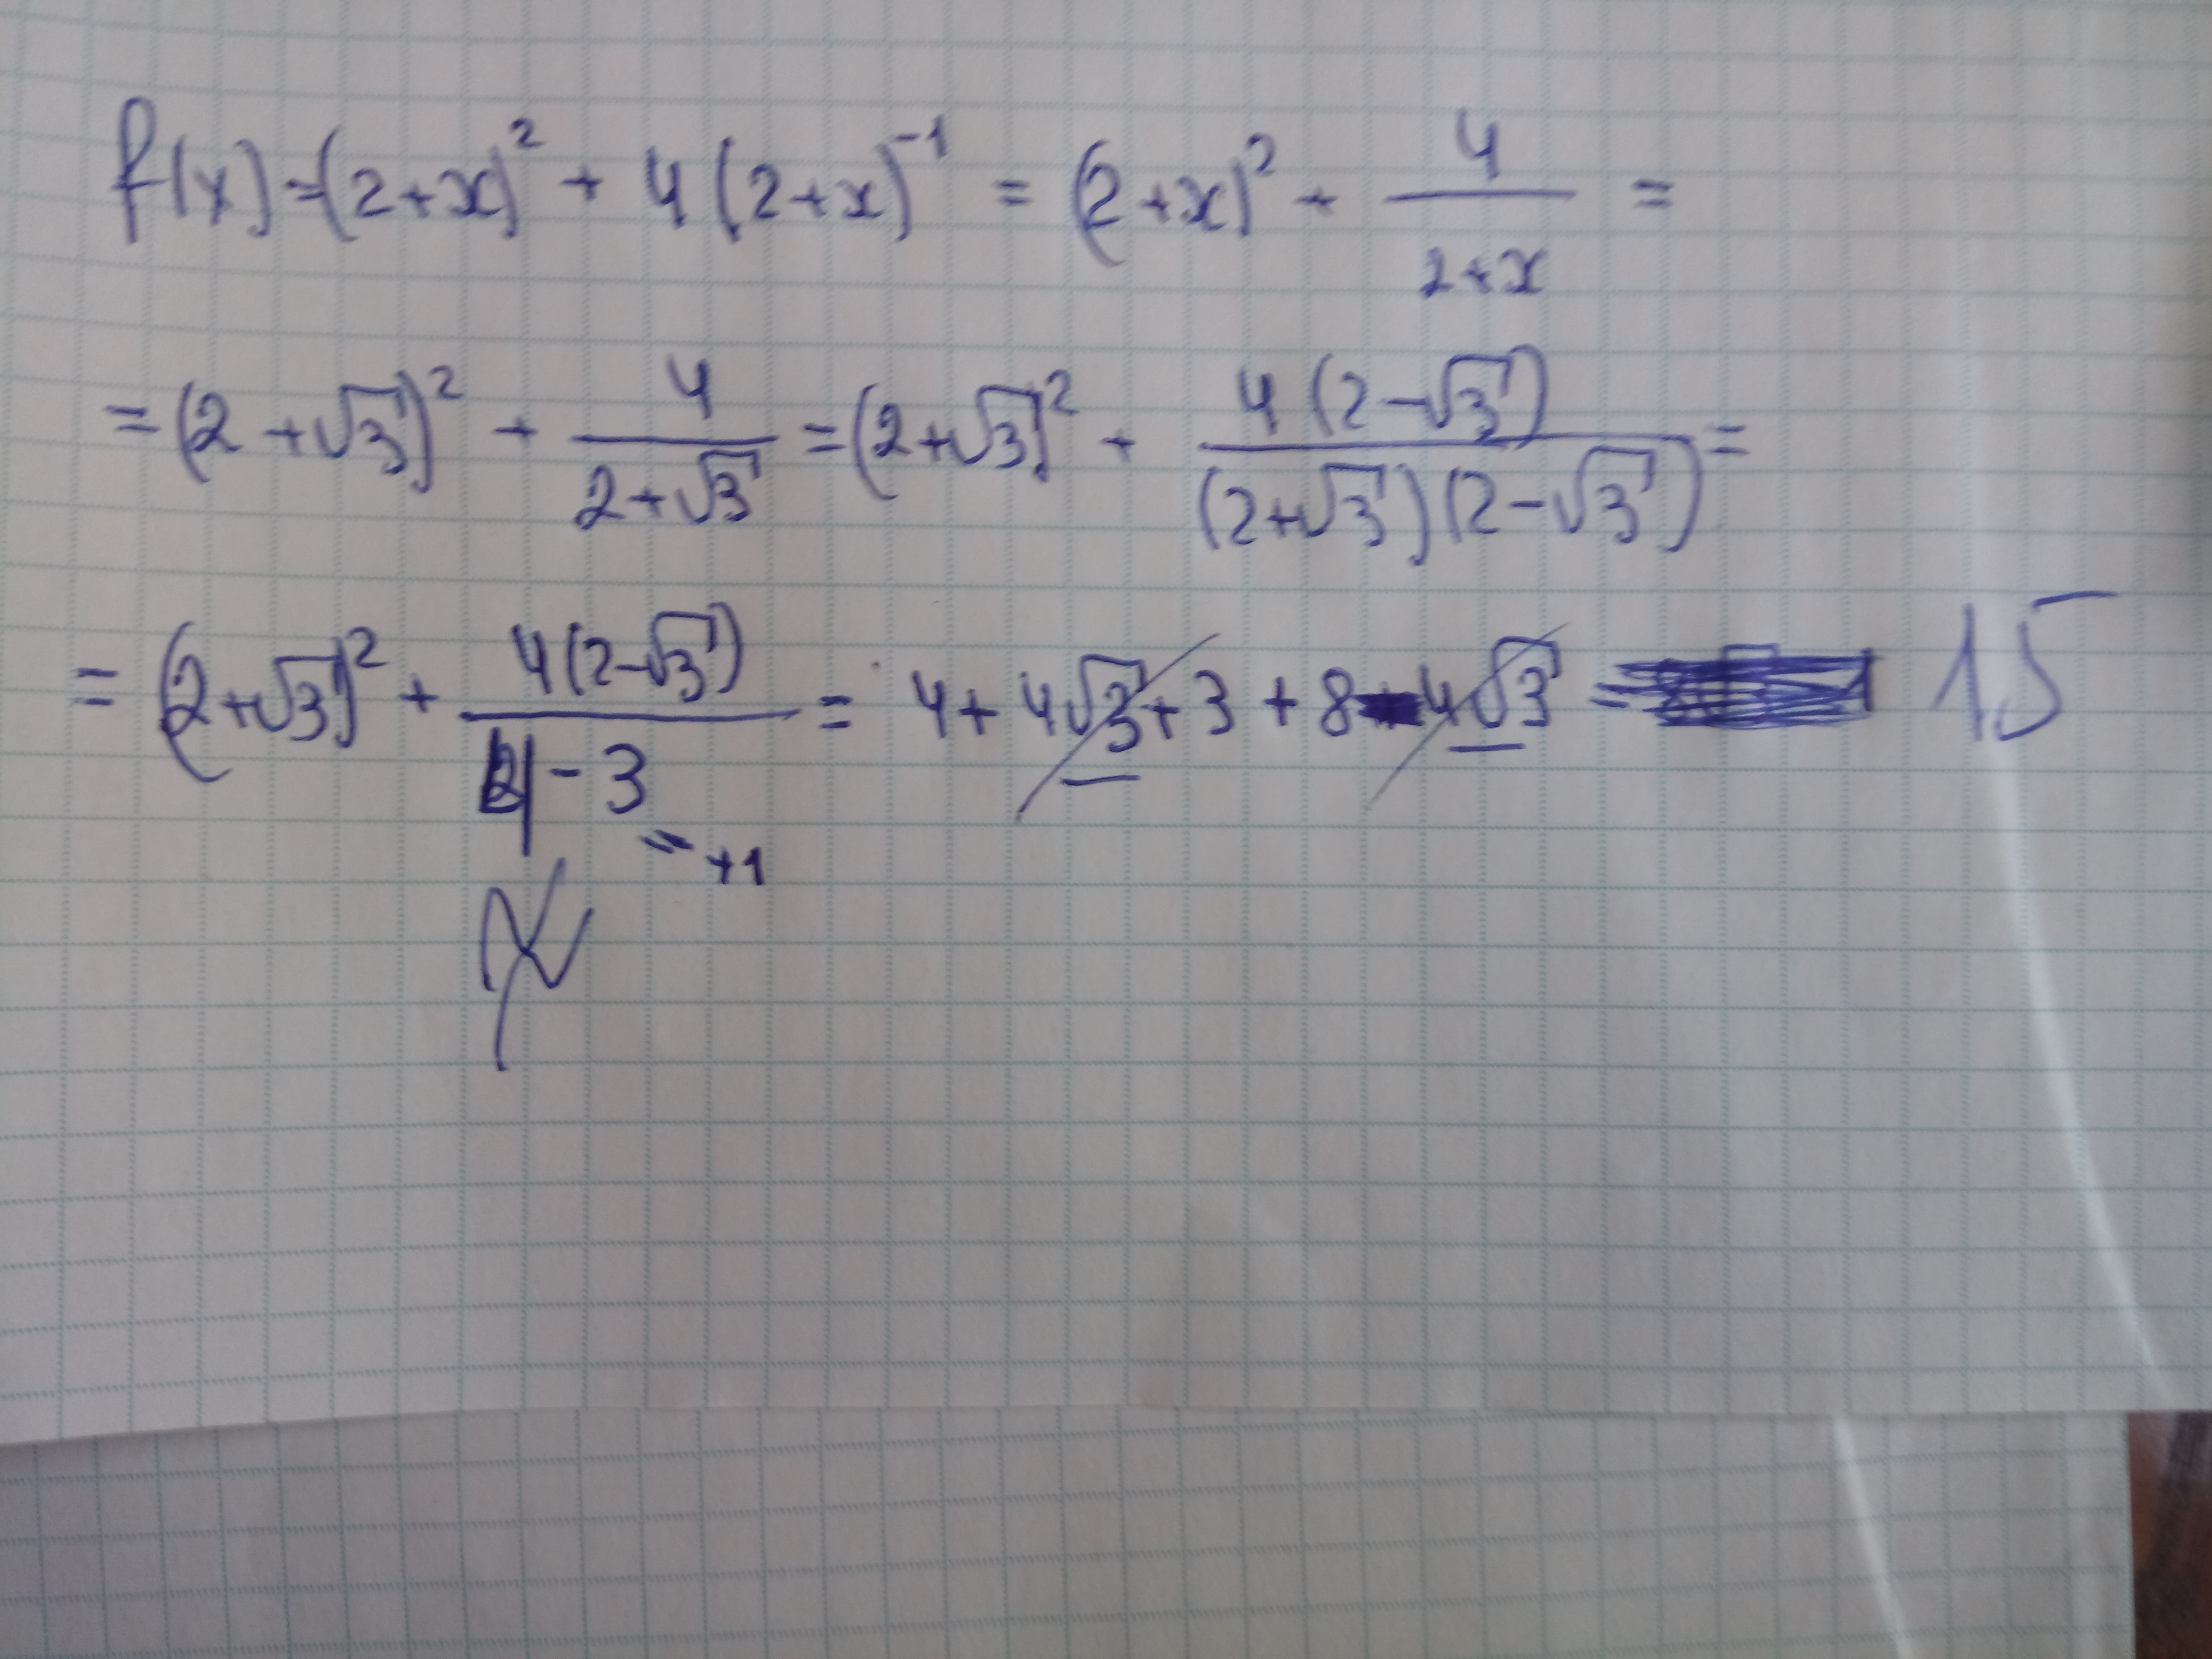 f(x) = (2+x)² + 4(2+x)⁻¹ = (2+x)² + 4/(2+x) =
= (2+√3)² + 4/(2+√3) = (2+√3)² + 4(2-√3)/((2+√3)(2-√3)) =
= (2+√3)² + 4(2-√3)/(4-3) = 4 + 4√3 + 3 + 8 - 4√3 = 15
= +1